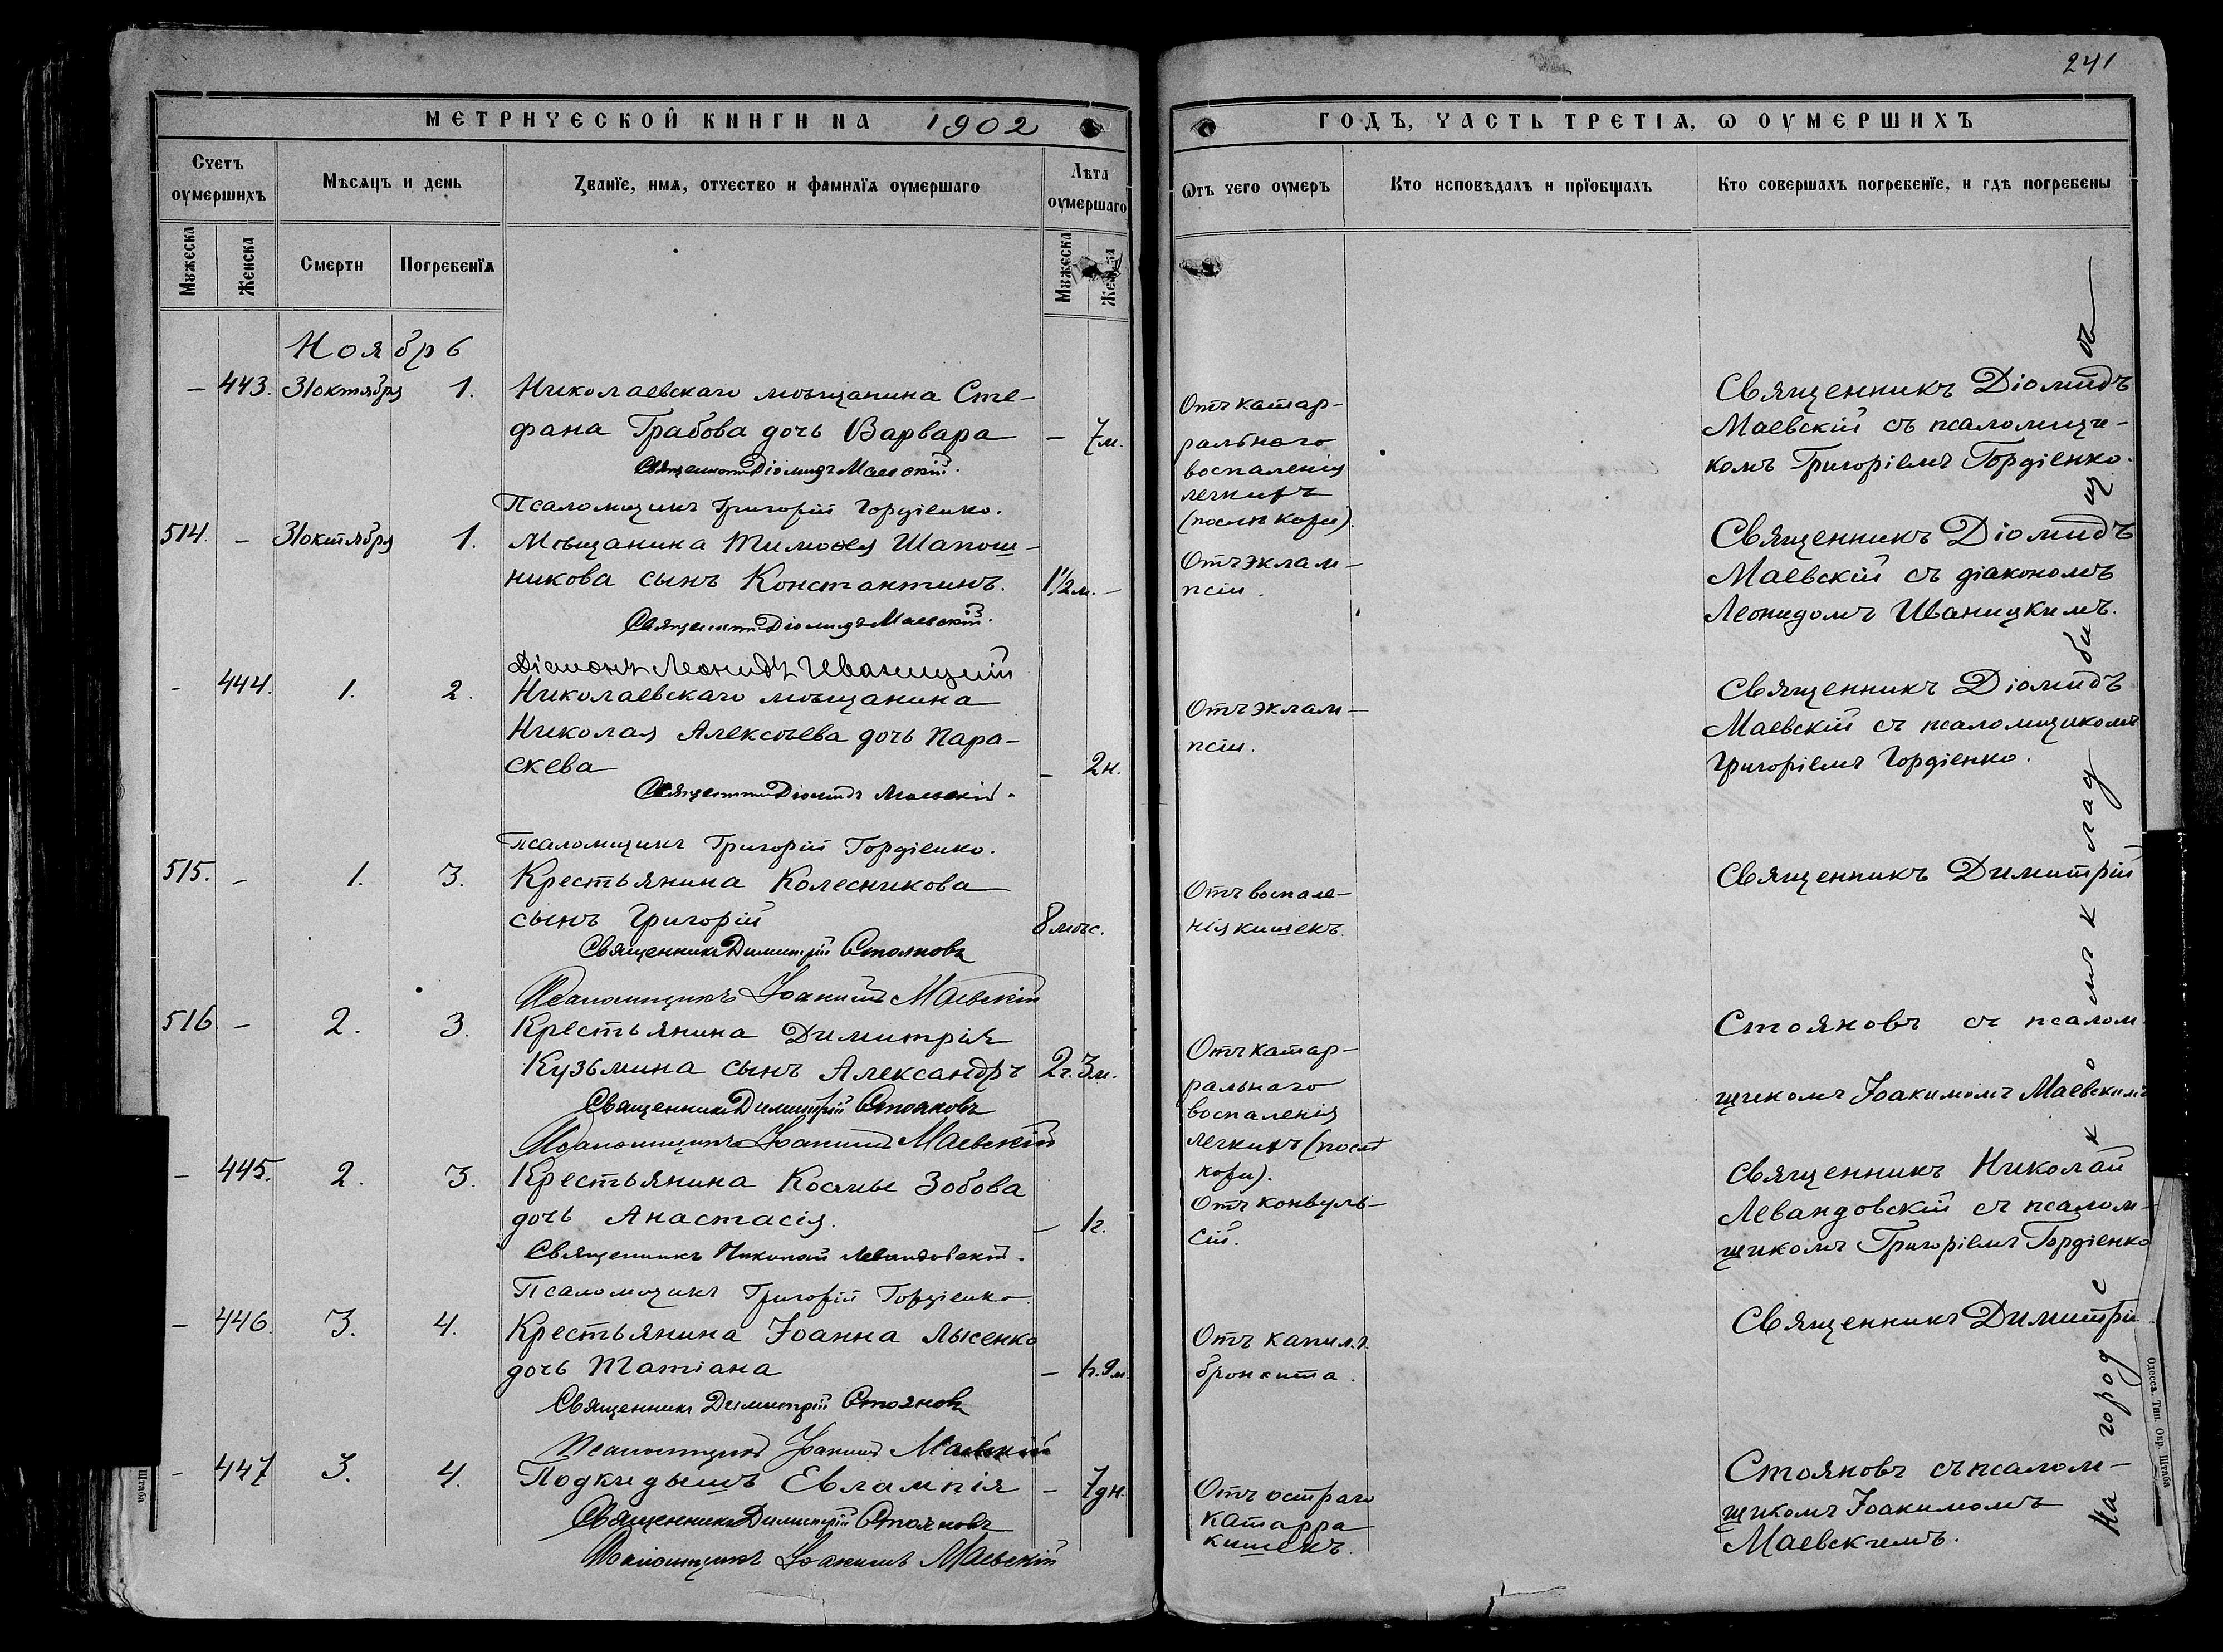 241
МЕТРИЧЕСКОЙ КНИГИ НА 1902
ГОДЪ, ЧАСТЬ ТРЕТІѦ, Ѡ ОУМЕРШИХЪ
Счетъ оумершихъ
Мѣсѧцъ и день
Званїе, имѧ, отчество и фамилїѧ оумершаго
Лѣта оумершаго
Ѿтъ чего оумеръ
Кто исповѣдалъ и прїобщалъ
Кто совершалъ погребенїе, и гдѣ погребены
Мужеска
Женска
Смерти
Погребенїѧ
Мужеска
Женска
Ноябрь
– 443. 31 октября 1. Николаевскаго мѣщанина Сте-
фана Грабова дочь Варвара – 7 м.
Священникъ Діомидъ Маевскій.
Псаломщикъ Григорій Гордіенко.
Отъ катар-
ральнаго
воспаленія
легкихъ
(послѣ кори).
Священникъ Діомидъ
Маевскій съ псаломщи-
комъ Григоріемъ Гордіенко.
514. – 31 октября 1. Мѣщанина Тимоѳея Шапош-
никова сынъ Константинъ. 1½ м. –
Священникъ Діомидъ Маевскій.
Діаконъ Леонидъ Иваницкій
Отъ эклам-
псіи.
Священникъ Діомидъ
Маевскій съ діакономъ
Леонидомъ Иваницкимъ.
– 444. 1. 2. Николаевскаго мѣщанина
Николая Алексѣева дочь Пара-
скева – 2 н.
Священникъ Діомидъ Маевскій.
Псаломщикъ Григорій Гордіенко.
Отъ эклам-
псіи.
Священникъ Діомидъ
Маевскій съ псаломщикомъ
Григоріемъ Гордіенко.
515. – 1. 3. Крестьянина Колесникова
сынъ Григорій 8 мѣс.
Священникъ Димитрій Стояновъ
Псаломщикъ Іоакимъ Маевскій
Отъ воспале-
нія кишекъ.
Священникъ Димитрій
516 – 2. 3. Крестьянина Димитрія
Кузьмина сынъ Александръ 2 г. 3 м.
Священникъ Димитрій Стояновъ
Псаломщикъ Іоакимъ Маевскій
Отъ катар-
ральнаго
воспаленія
легкихъ (послѣ
кори).
Стояновъ съ псалом-
щикомъ Іоакимомъ Маевскимъ
– 445. 2. 3. Крестьянина Косьмы Зобова
дочь Анастасія. – 1 г.
Священникъ Николай Левандовскій.
Псаломщикъ Григорій Гордіенко.
Отъ конвуль-
сій.
Священникъ Николай
Левандовскій съ псалом-
щикомъ Григоріемъ Гордіенко
– 446. 3. 4. Крестьянина Іоанна Лысенко
дочь Татіана – 1 г. 9 м.
Священникъ Димитрій Стояновъ
Псаломщикъ Іоакимъ Маевскій
Отъ капил.
бронхита.
Священникъ Димитрій
– 447 3. 4. Подкидышъ Евлампія – 7 дн.
Священникъ Димитрій Стояновъ
Псаломщикъ Іоакимъ Маевскій
Отъ остраго
катарра
кишекъ.
Стояновъ съ псалом-
щикомъ Іоакимомъ
Маевскимъ.
На городскомъ кладбищѣ
Одесса. Тип. Окр. Штаба
Штаба